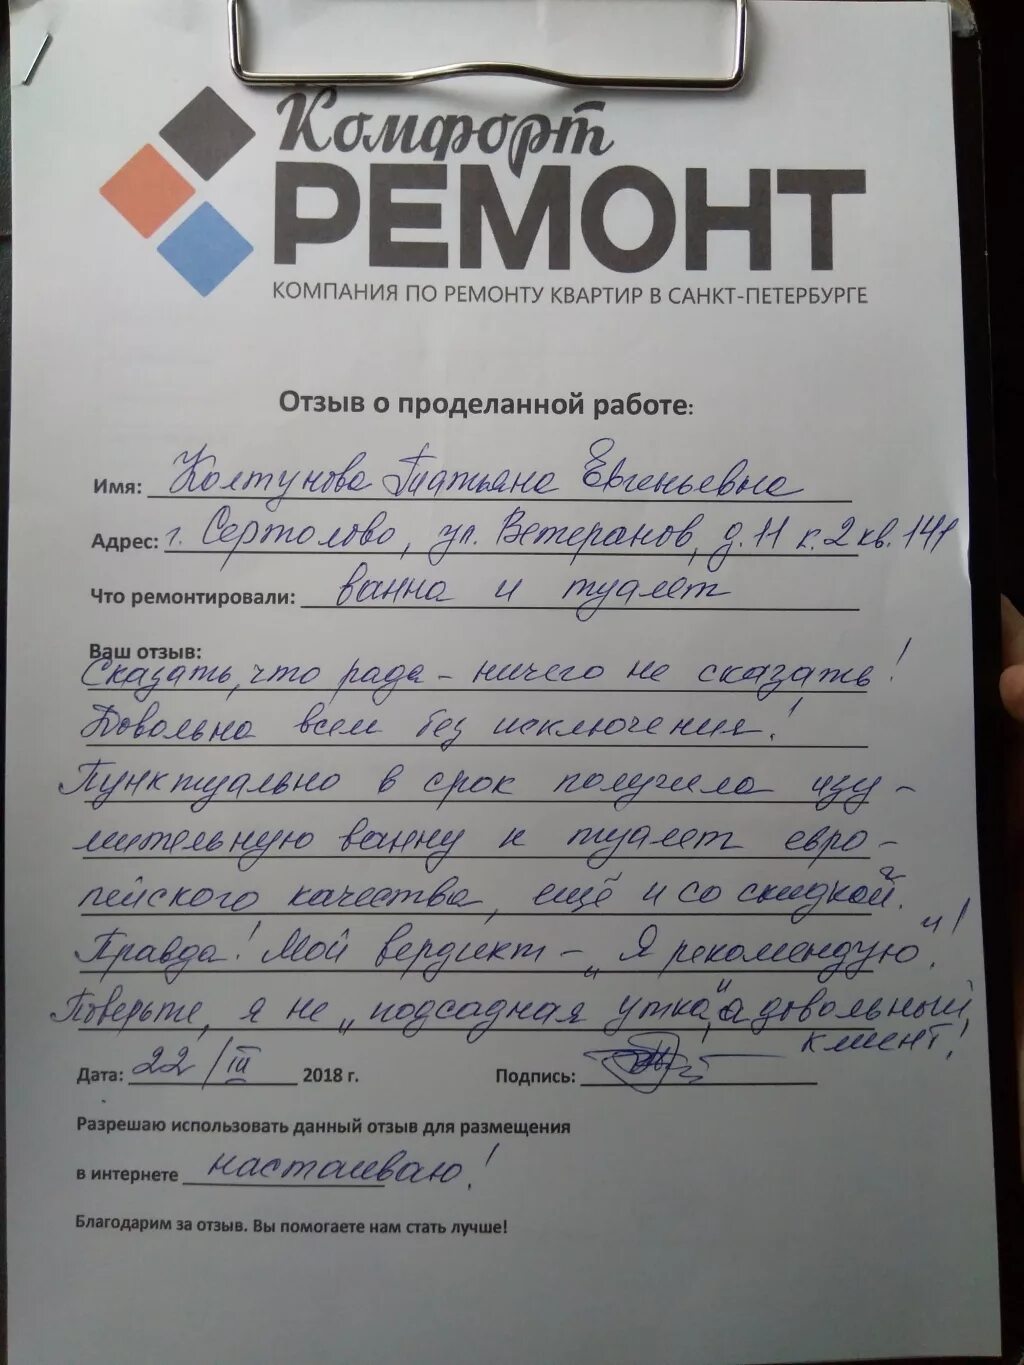 Комфорт
РЕМОНТ
КОМПАНИЯ ПО РЕМОНТУ КВАРТИР В САНКТ-ПЕТЕРБУРГЕ
Отзыв о проделанной работе:
Имя: Колтунова Татьяна Евгеньевна
Адрес: г. Сертолово, ул. Ветеранов, д. 11 к. 2 кв. 141
Что ремонтировали: ванна и туалет
Ваш отзыв:
Сказать, что рада - ничего не сказать!
Довольна всем без исключения!
Пунктуально в срок получила изу-
мительную ванну и туалет евро-
пейского качества, ещё и со скидкой.
Правда! Мой вердикт - „Я рекомендую"!
Поверьте, я не „подсадная утка", а довольный
клиент!
Дата: 22/III 2018 г. Подпись:
Разрешаю использовать данный отзыв для размещения
в интернете настаиваю!
Благодарим за отзыв. Вы помогаете нам стать лучше!